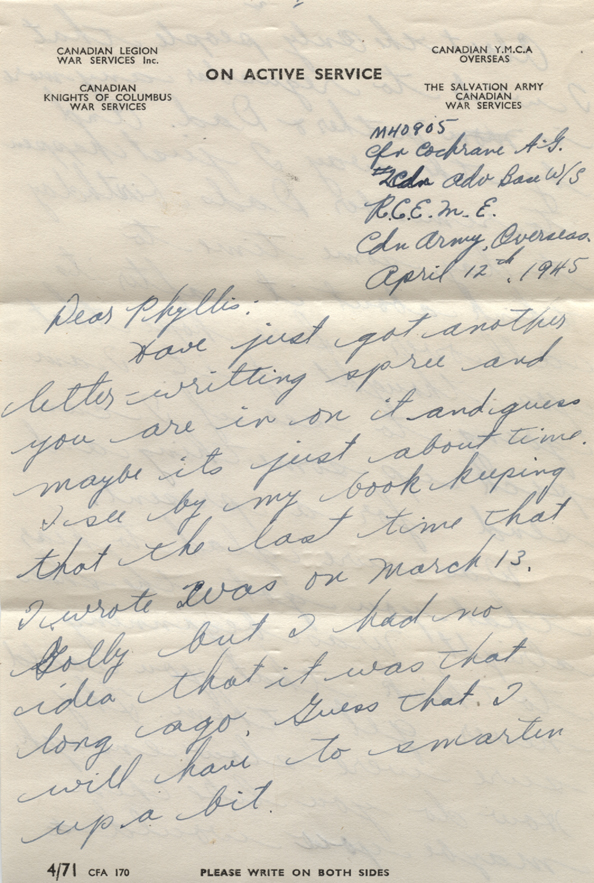 CANADIAN LEGION
WAR SERVICES Inc.
CANADIAN
KNIGHTS OF COLUMBUS
WAR SERVICES
ON ACTIVE SERVICE
CANADIAN Y.M.C.A
OVERSEAS
THE SALVATION ARMY
CANADIAN
WAR SERVICES
M40905
Cfn Cochrane A.G.
#2 Cdn Adv Base W/S
R.C.E.M.E.
Cdn Army, Overseas.
April 12th, 1945
Dear Phyllis:
Have just got another
letter-writting spree and
you are in on it and guess
maybe its just about time.
I see by my book keeping
that the last time that
I wrote was on March 13.
Golly but I had no
idea that it was that
long ago. Guess that I
will have to smarten
up a bit.
4/71 CFA 170 PLEASE WRITE ON BOTH SIDES